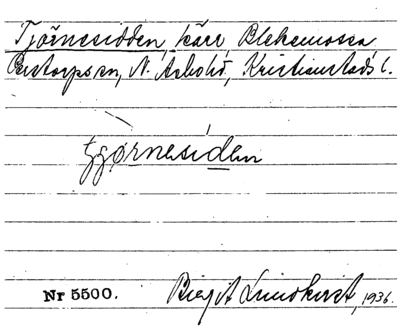 Tjörnesidden, kärr, Blekemossa
Perstorps sn, N. Åsbohd, Kristianstads l.
tjørnesíden
Nr 5500. Birgit Lundkvist, 1936.